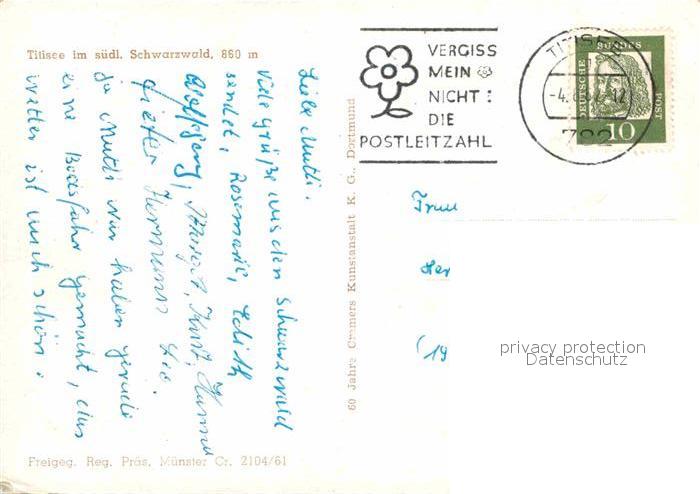 Titisee im südl. Schwarzwald, 860 m
VERGISS
MEIN
NICHT :
DIE
POSTLEITZAHL
TITISEE
-4.
12
782
DEUTSCHE
BUNDES
POST
10
Liebe Mutti.
Viele Grüße aus den Schwarzwald
sendet, Rosemarie, Edith
Wolfgang, Margot, Kurt, Hanne
Dieter Hermann
Ja Mutti wir haben gerade
eine Bootsfahrt gemacht, das
Wetter ist auch schön.
60 Jahre Cramers Kunstanstalt K. G., Dortmund
Frau
Her
(19
privacy protection
Datenschutz
Freigeg. Reg. Präs. Münster Cr. 2104/61